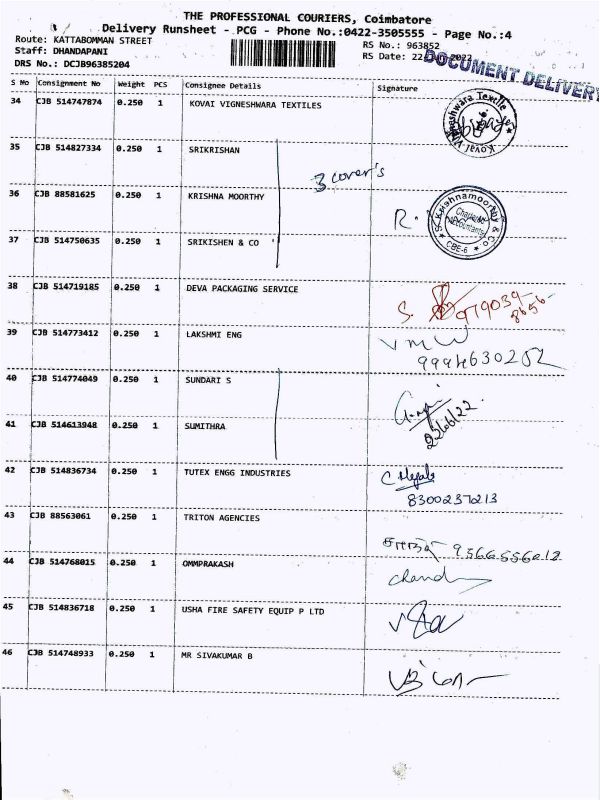 THE PROFESSIONAL COURIERS, Coimbatore
Delivery Runsheet - PCG - Phone No.:0422-3505555 - Page No.:4
Route: KATTABOMMAN STREET
Staff: DHANDAPANI
DRS No.: DCJB96385204
RS No.: 963852
RS Date: 22/
DOCUMENT DELIVERY
S No Consignment No Weight PCS Consignee Details Signature
34 CJB 514747874 0.250 1 KOVAI VIGNESHWARA TEXTILES
35 CJB 514827334 0.250 1 SRIKRISHAN
3 cover's
36 CJB 88581625 0.250 1 KRISHNA MOORTHY
R.
S. Krishnamoorthy & Co
Chartered Accountants
CBE-6
37 CJB 514750635 0.250 1 SRIKISHEN & CO
38 CJB 514719185 0.250 1 DEVA PACKAGING SERVICE
S. 979039-8656-
39 CJB 514773412 0.250 1 LAKSHMI ENG
V M W
9994630252
40 CJB 514774049 0.250 1 SUNDARI S
41 CJB 514613948 0.250 1 SUMITHRA
42 CJB 514836734 0.250 1 TUTEX ENGG INDUSTRIES
8300237213
43 CJB 88563061 0.250 1 TRITON AGENCIES
9566556012
44 CJB 514768015 0.250 1 OMMPRAKASH
chand
45 CJB 514836718 0.250 1 USHA FIRE SAFETY EQUIP P LTD
46 CJB 514748933 0.250 1 MR SIVAKUMAR B